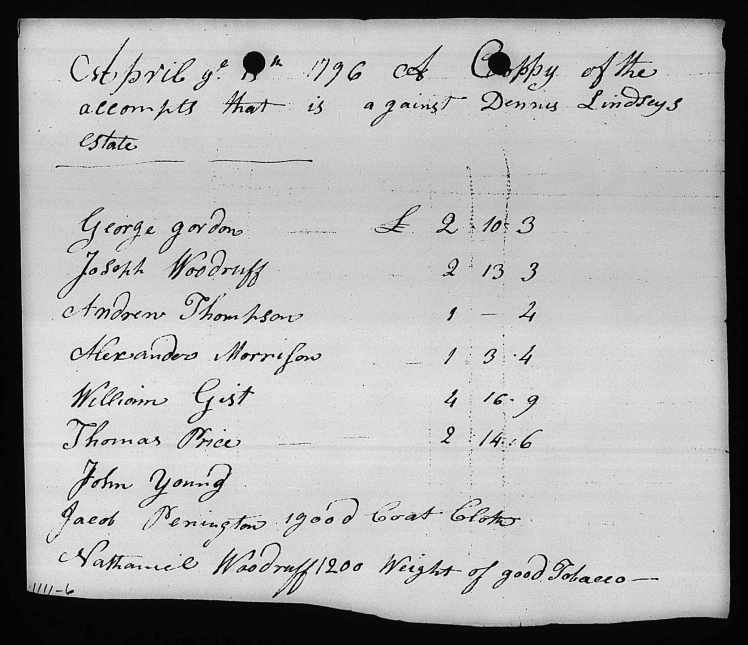 April ye 1796 A Coppy of the
accompts that is against Dennis Lindseys
Estate
George gordon £ 2 10 3
Joseph Woodruff 2 13 3
Andrew Thompson 1 – 4
Alexander Morrison 1 3 4
William Gist 4 16 9
Thomas Price 2 14 6
John Young
Jacob Penington 1 good Coat Cloth
Nathaniel Woodruff 1200 Weight of good Tobacco —
1111-6